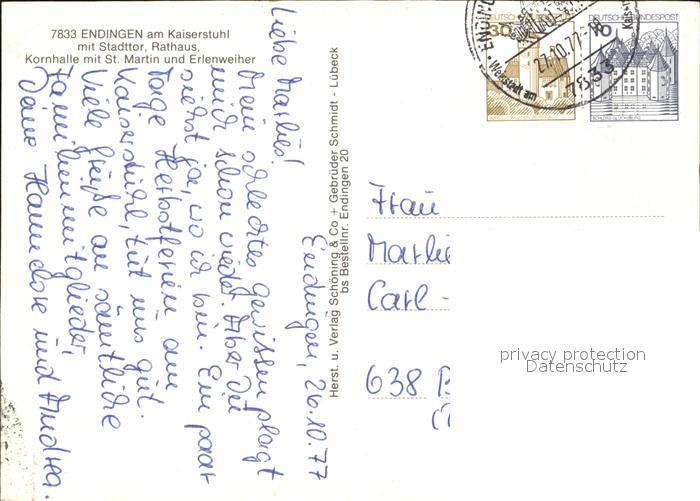 7833 ENDINGEN am Kaiserstuhl
mit Stadttor, Rathaus,
Kornhalle mit St. Martin und Erlenweiher
Endingen, 26.10.77
Liebe Marlies!
Mein schlechtes Gewissen plagt
mich schon wieder. Aber Du
siehst ja, wo ich bin. Ein paar
Tage Herbstferien am
Kaiserstuhl, tut uns gut.
Viele Grüße an sämtliche
Familienmitglieder,
Deine Hannelore und Andrea.
Herst. u. Verlag Schöning & Co + Gebrüder Schmidt - Lübeck
bs Bestellnr. Endingen 20
DEUTSCHE BUNDESPOST
30
DEUTSCHE BUNDESPOST
10
SCHLOSS GLÜCKSBURG
27.10.77
7833
Weinstadt am
Frau
Marlie
Carl -
638 B
privacy protection
Datenschutz